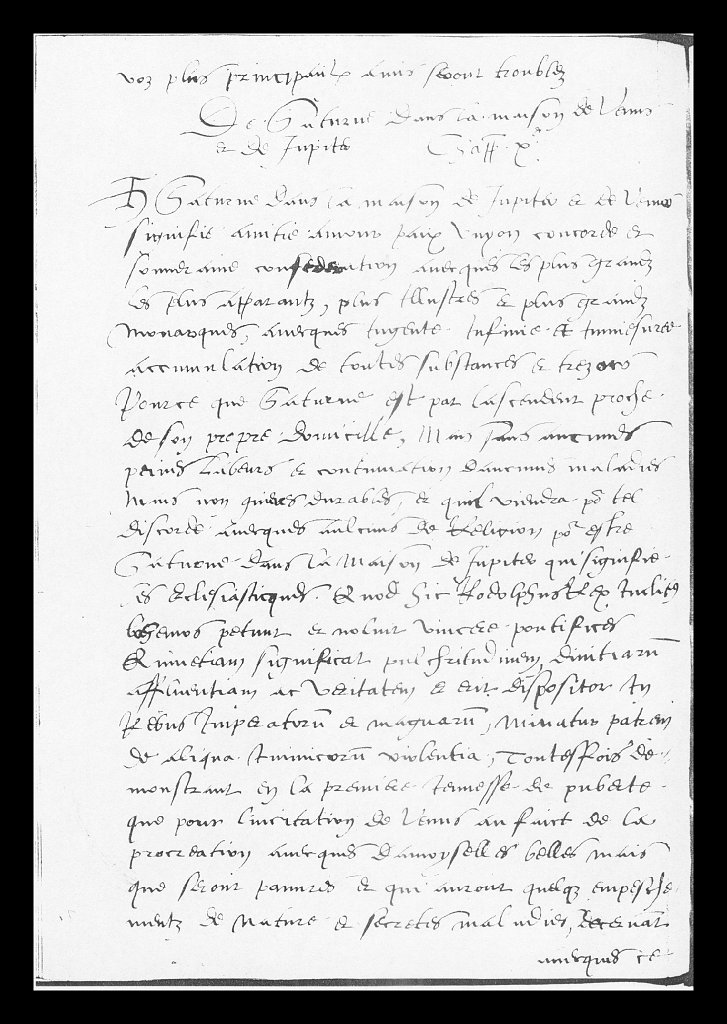 voz plus principaulx amis seront troublez
De Saturne dans la maison de Venus
et de Jupiter Chap. x.
Saturne dans la maison de Jupiter et de Venus
signifie amitie amour paix Unyon concorde et
souveraine confederation avecques les plus grandz
les plus apparantz, plus Illustres et plus grandz
Monarques, avecques ingente Infinie et immesuree
accumulation de toutes substances et trezors
Pource que Saturne est par lascendent proche
de son propre domicille, Mais sans aucunes
peines labeurs et continuation daucunes maladies
Mais non gueres durables, et quil viendra po.r tel
discorde avecques aulcuns de Religion po.r estre
Saturne dans la Maison de Jupiter qui signifie
les Eclesiasticques. Et nod hic Rodolphus Rex Inclitus
bohemos petunt et noluit vincere pontifices
Et in etiam significat pulchritudinem, divitiarum
affluentiam ac veritatem et erit dispositor In
Rebus Imperatorum et magnarum, Minatur patrem
de aliqua Inimicorum violentia, Toutesfois de-
monstrant en la premiere jeunesse de puberte
que pour lincitation de Venus au faict de la
procreation avecques damoyselles belles mais
que seront pauvres et qui auront quelqz empesche
mentz de Nature et secretes maladies,
avecques ce